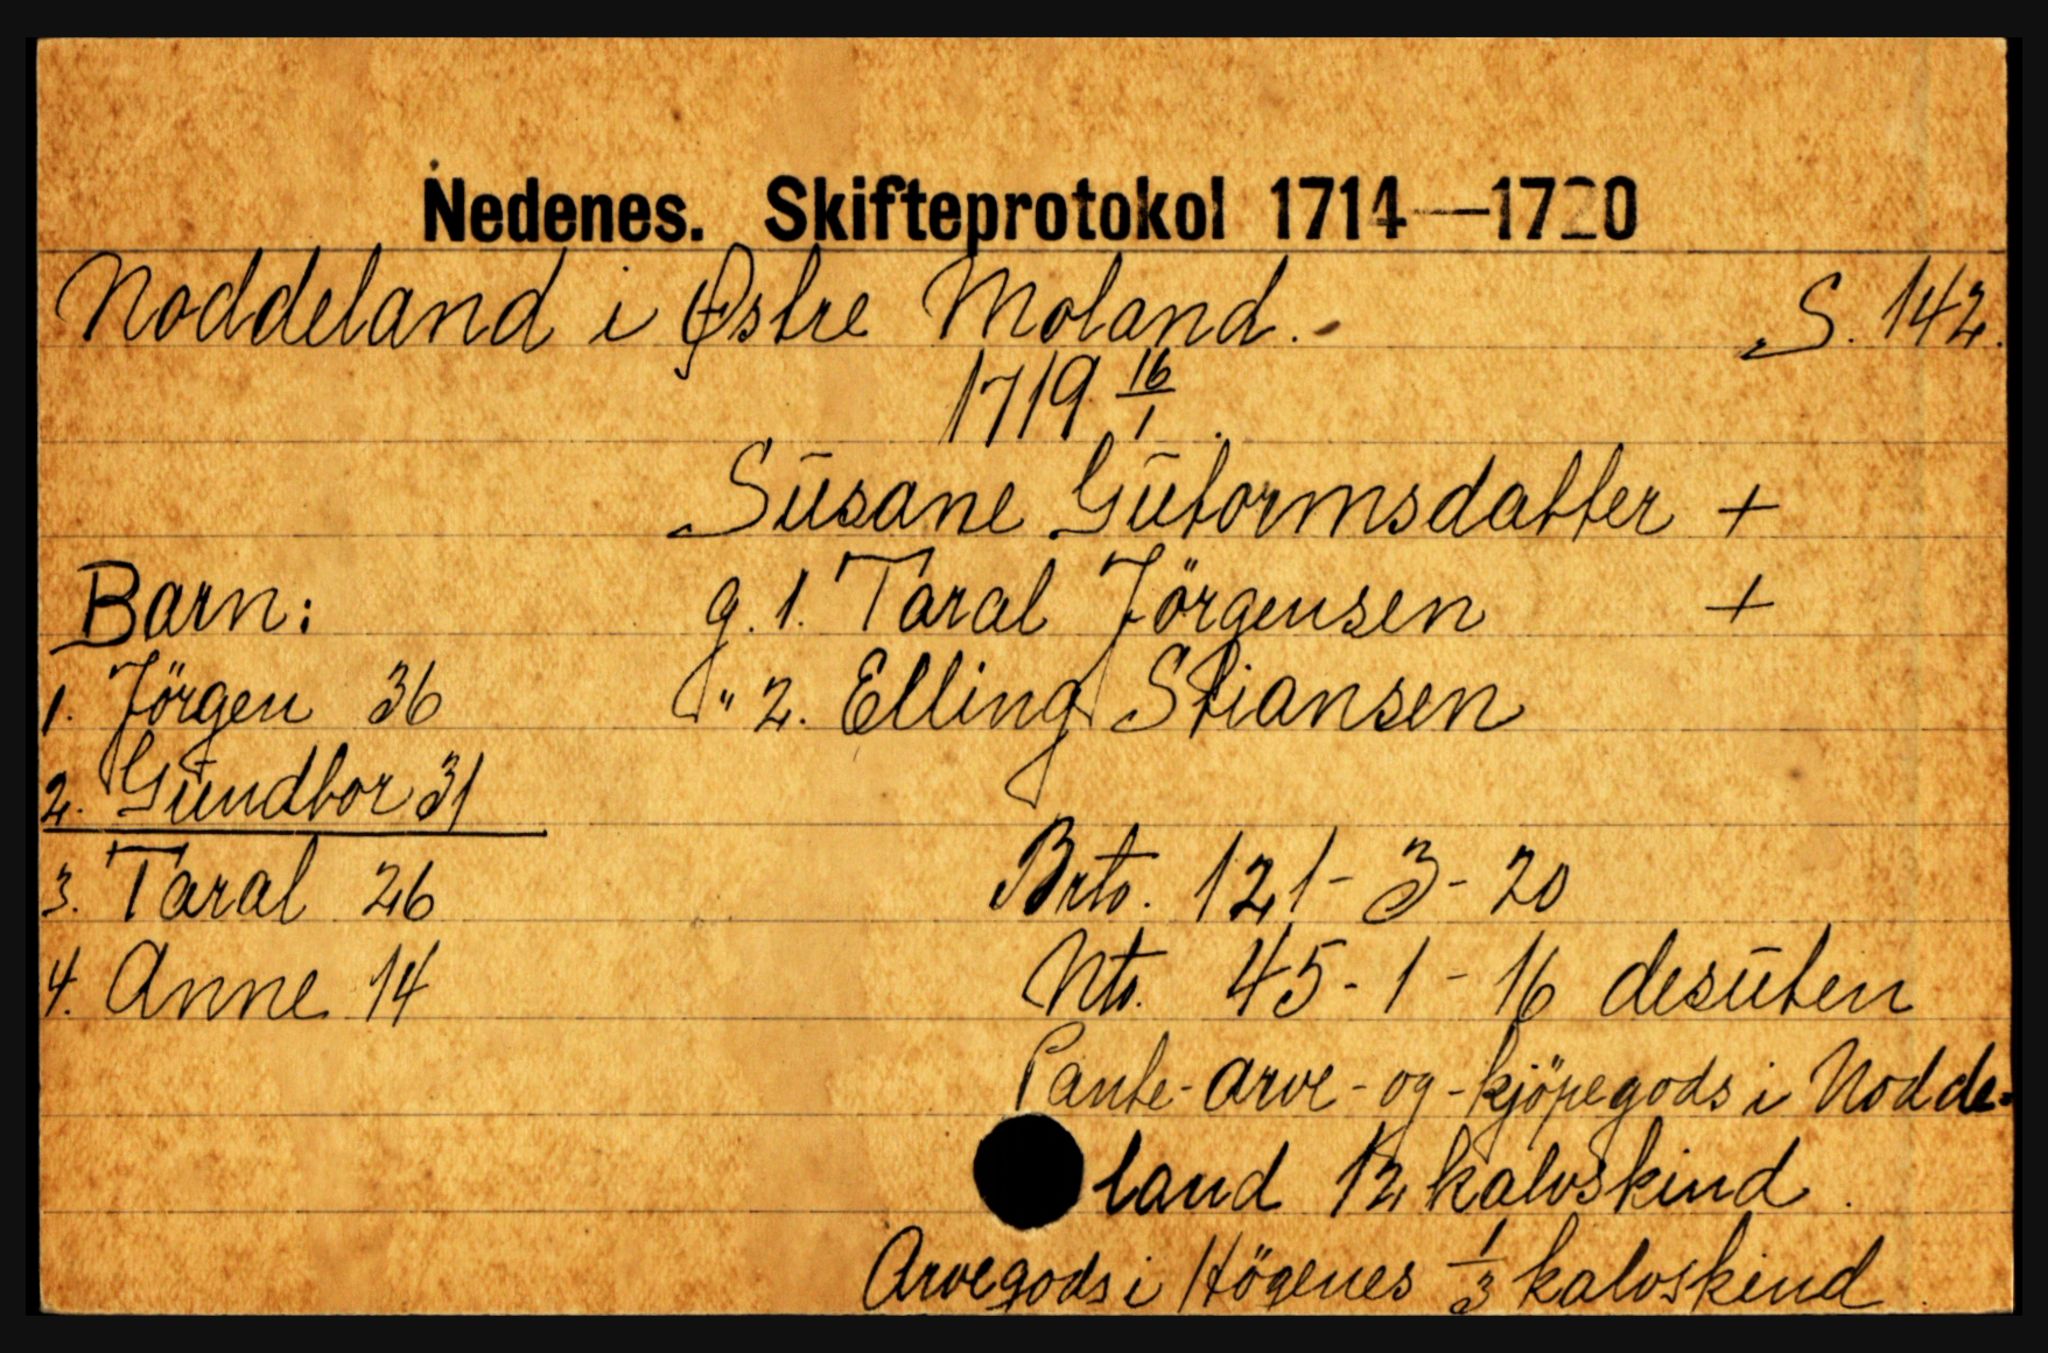 Nedenes. Skifteprotokol 1714—1720
Noddeland i Østre Moland. S. 142.
1719 16/1.
Sūsane Gūtormsdatter +
Barn: g. 1. Taral Jörgensen +
1. Jörgen 36 " 2. Elling Stiansen
2. Gūndbor 31
3. Taral 26 Brto. 121-3-20
4. Anne 14 Nto. 45-1-16 desūten
Pante- arve- og- kjöpegods i Nodde-
land 12 kalvskind.
Arvegods i Högenes 1/3 kalvskind.